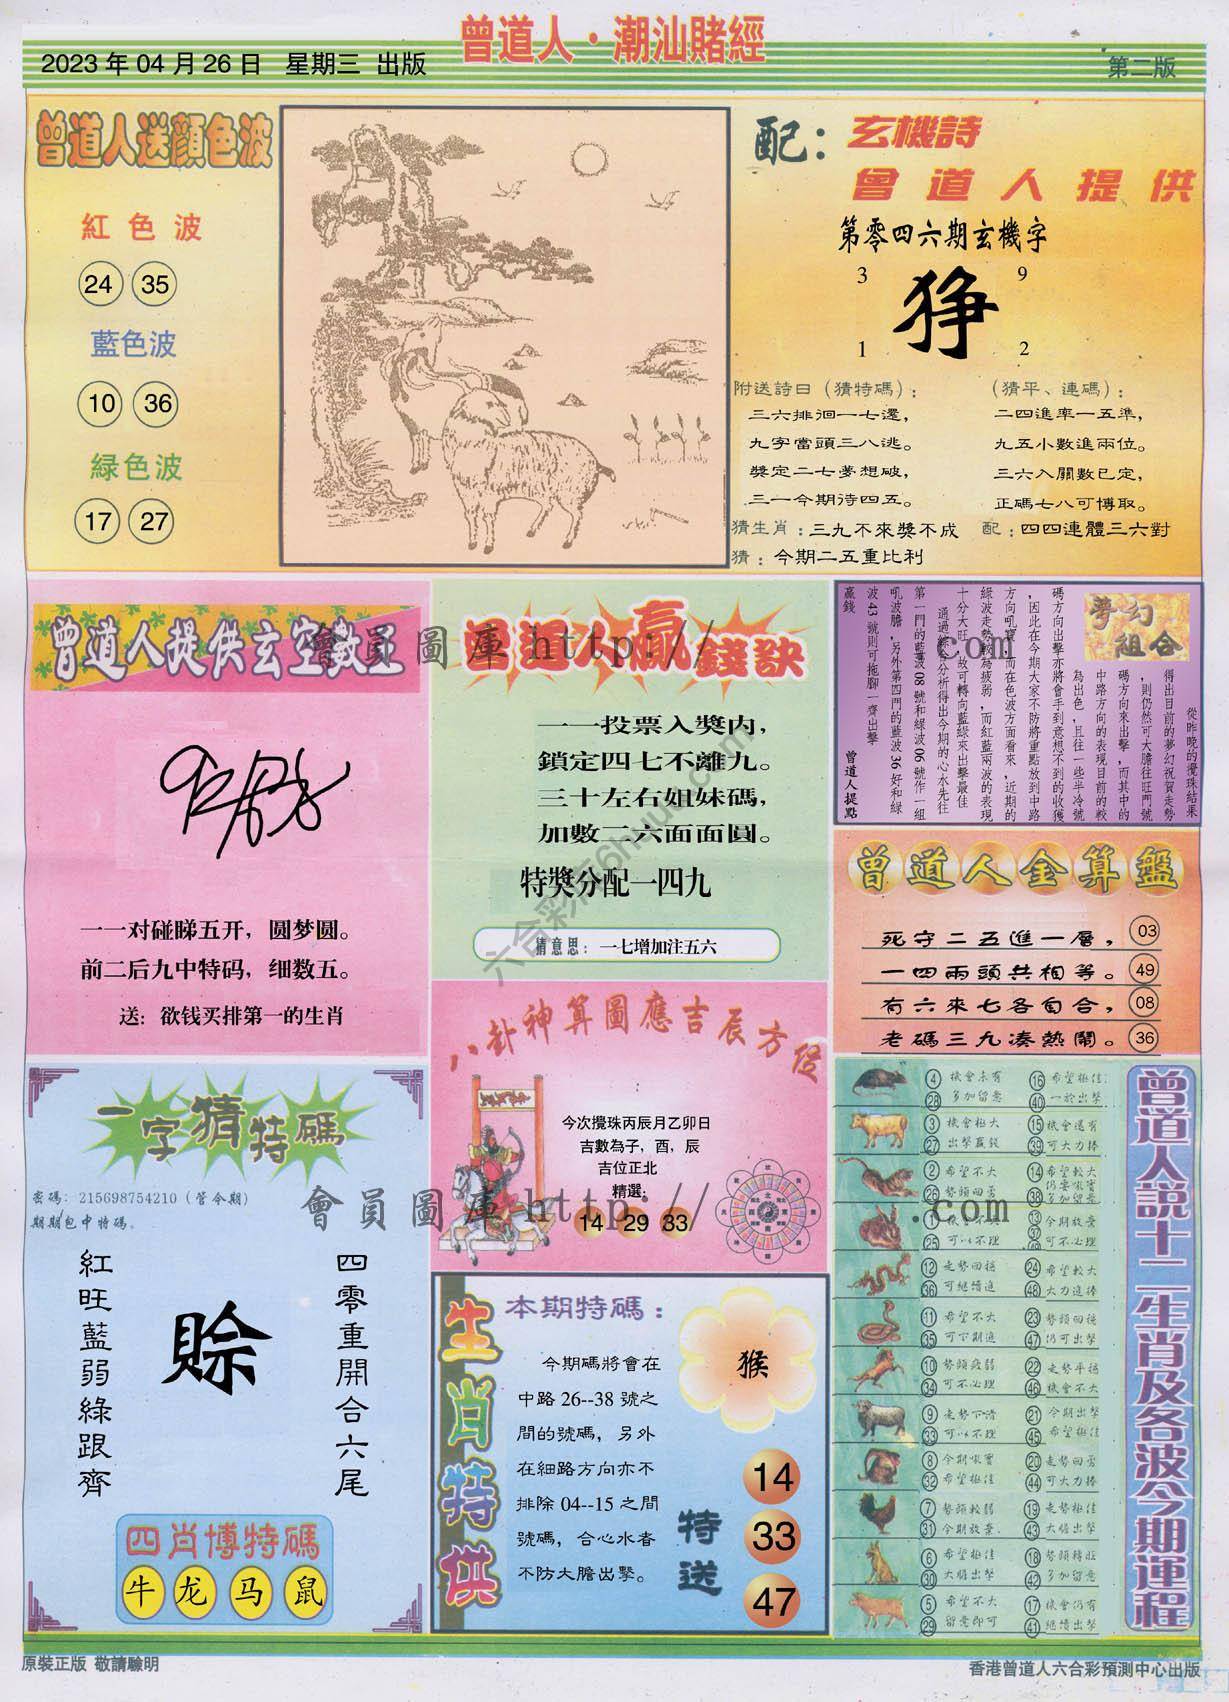 曾道人·潮汕賭經
2023年04月26日 星期三 出版
第二版
曾道人送顏色波
紅色波
24 35
藍色波
10 36
緑色波
17 27
配:玄機詩
曾道人提供
第零四六期玄機字
3 9
狰
1 2
附送詩日(猜特碼):
三六排徊一七還,
九字當頭三八逃。
獎定二七夢想破,
三一今期待四五。
(猜平、連碼):
二四進率一五準,
九五小數進兩位。
三六入關數已定,
正碼七八可博取。
猜生肖:三九不來獎不成
配:四四連體三六對
猜:今期二五重比利
曾道人提供玄空數王
一一对碰睇五开,圆梦圆。
前二后九中特码,细数五。
送:欲钱买排第一的生肖
曾道人贏錢訣
一一投票入獎内,
鎖定四七不離九。
三十左右姐妹碼,
加數二六面面圓。
特獎分配一四九
猜意思:一七增加注五六
夢幻組合
從昨晚的攪珠結果
得出目前的夢幻祝賀走勢
,則仍然可大膽往旺門號
碼方向來出擊,而其中的
中路方向的表現目前的較
為出色,且往一些半冷號
碼方向出擊亦將會手到意想不到的收獲
,因此在今期大家不防將重點放到中路
方向吼寶,而在色波方面看來,近期的
綠波走勢較為疲弱,而紅藍兩波的表現
十分大旺,故可轉向藍綠來出擊最佳
通過綜合分析得出今期的心水先往
第一門的藍波08號和綠波06號作一組
吼波膽,另外第四門的藍波36好和綠
波43號則可拖腳一齊出擊
贏錢
曾道人提點
曾道人金算盤
死守二五進一層, 03
一四兩頭共相等。 49
有六來七各自合, 08
老碼三九凑熱鬧。 36
八卦神算圖應吉辰方位
今次攪珠丙辰月乙卯日
吉數為子,酉,辰
吉位正北
精選:
14 29 33
一字猜特碼
密碼:215698754210(管令期)
期期包中特碼。
四零重開合六尾
賒
紅旺藍弱綠跟齊
四肖博特碼
牛 龙 马 鼠
生肖特供
本期特碼:
猴
今期碼將會在
中路26--38號之
間的號碼,另外
在細路方向亦不
排除04--15之間
號碼,合心水者
不防大膽出擊。
特送
14
33
47
曾道人說十二生肖及各波今期運程
4 28 機會未有 多加留意 16 40 希望極佳 一於出擊
3 27 機會極大 出擊贏錢 15 39 機會還有 可大力捧
2 26 希望不大 勢頭回勇 14 38 希望較大 仍要吼實 多加留意
1 25 機會不 可以不理 13 37 49 今期放棄 可不必理
12 36 走勢回穩 可繼續進 24 48 希望較大 大力追捧
11 35 希望不大 可下期進 23 47 勢頭回穩 仍可出擊
10 34 勢頭疲弱 可不必理 22 46 走勢平穩 機會不大
9 33 走勢下滑 可以不理 21 45 今期出擊 希望極佳
8 32 今期吼實 希望極佳 20 44 走勢回勇 可大力捧
7 31 勢頭較弱 今期放棄 19 43 走勢極佳 大膽出擊
6 30 希望極佳 大膽出擊 18 42 勢頭轉旺 多加留意
5 29 希望不大 留意即可 17 41 機會仍有 繼續出擊
原裝正版 敬請驗明
香港曾道人六合彩預測中心出版
會員圖庫 http:// .com
會員圖庫 http:// .com